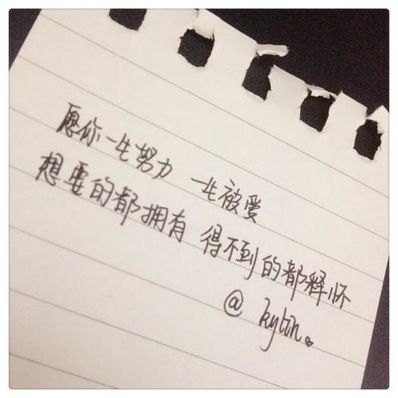 愿你一生努力 一生被爱
想要的都拥有 得不到的都释怀
@ kylin